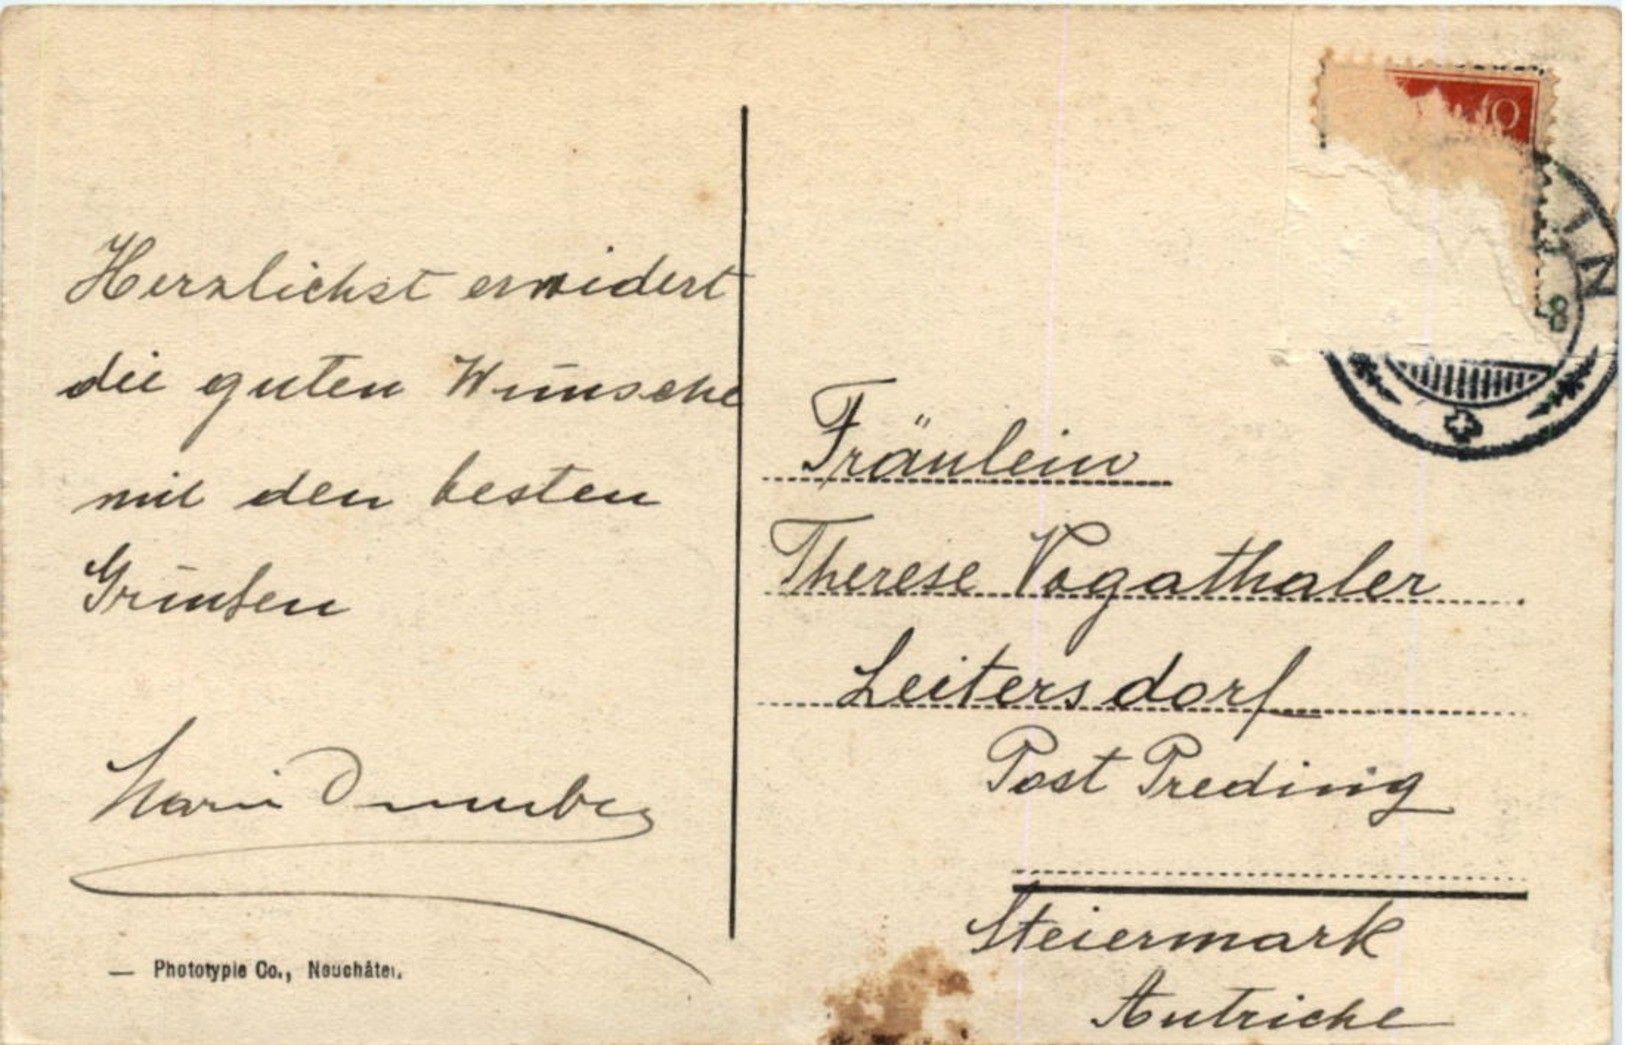 Herzlichst erwidert
die guten Wünsche
mit den besten
Grüußen
Marie
— Phototypie Co., Neuchâtel.
10
IN
8
Fräulein
Therese Vogathaler
Leitersdorf
Post Preding
Steiermark
Autriche